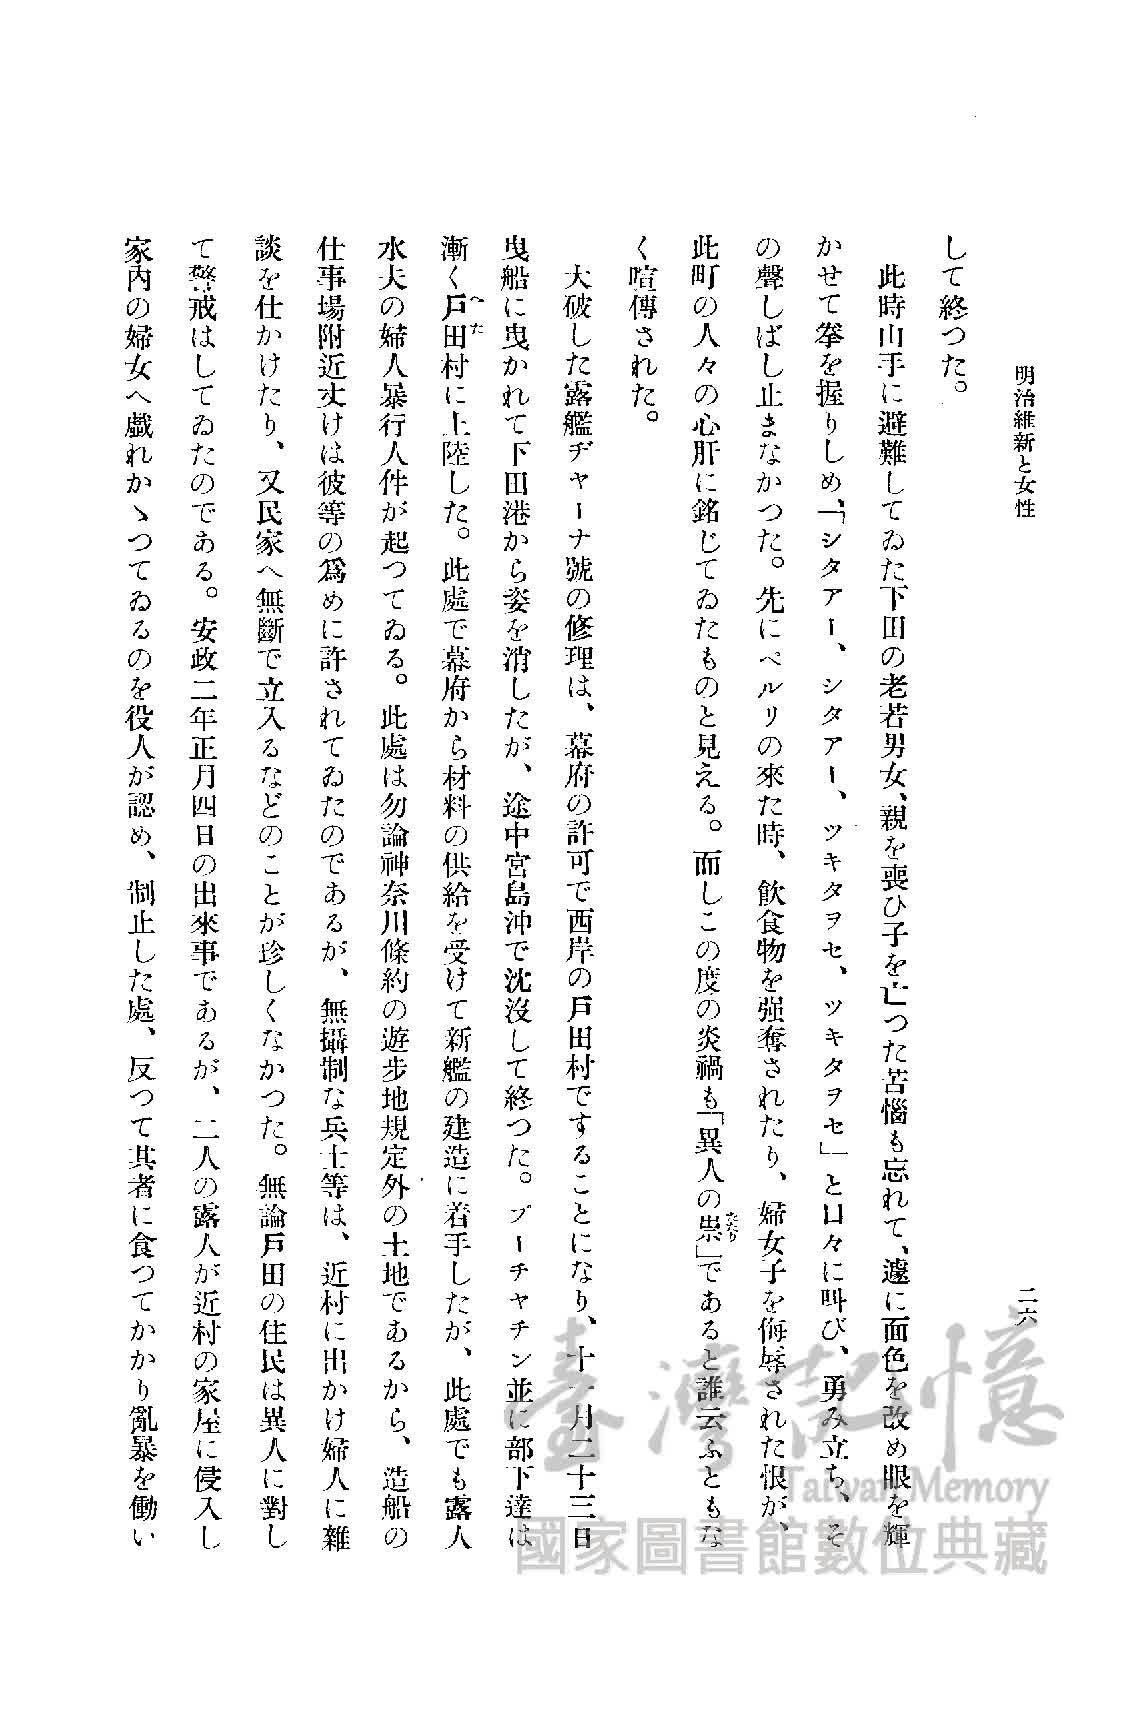 明治維新と女性
二六
して終つた。
此時山手に避難してゐた下田の老若男女、親を喪ひ子を亡つた苦惱も忘れて、遽に面色を改め眼を輝
かせて拳を握りしめ、「シタアー、シタアー、ツキタヲセ、ツキタヲセ」と口々に叫び、勇み立ち、そ
の聲しばし止まなかつた。先にペルリの來た時、飲食物を强奪されたり、婦女子を侮辱された恨が、
此町の人々の心肝に銘じてゐたものと見える。而しこの度の炎禍も「異人の祟」であると誰云ふともな
たたり
く喧傳された。
大破した露艦ヂャーナ號の修理は、幕府の許可で西岸の戸田村ですることになり、十一月二十三日
曳船に曳かれて下田港から姿を消したが、途中宮島沖で沈沒して終つた。プーチャチン並に部下達は
漸く戸田村に上陸した。此處で幕府から材料の供給を受けて新艦の建造に着手したが、此處でも露人
へた
水夫の婦人暴行人件が起つてゐる。此處は勿論神奈川條約の遊步地規定外の土地であるから、造船の
仕事場附近丈けは彼等の爲めに許されてゐたのであるが、無攝制な兵士等は、近村に出かけ婦人に雜
談を仕かけたり、又民家へ無斷で立入るなどのことが珍しくなかつた。無論戸田の住民は異人に對し
て警戒はしてゐたのである。安政二年正月四日の出來事であるが、二人の露人が近村の家屋に侵入し
家内の婦女へ戲れかゝつてゐるのを役人が認め、制止した處、反つて其者に食つてかかり亂暴を働い
臺灣記憶
Taiwan Memory
國家圖書館數位典藏